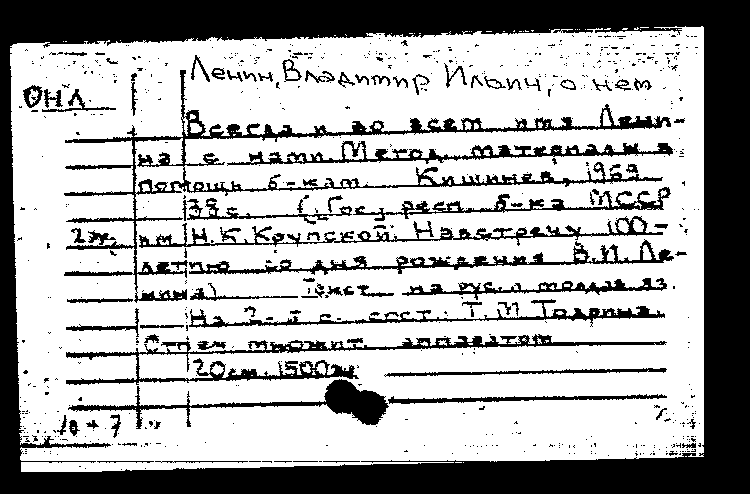 Ленин, Владимир Ильич, о нем
ОНЛ
Всегда и во всем имя Лени-
на с нами. Метод. материалы в
помощь б-кам. Кишинев, 1969.
38 с. (Гос. респ. б-ка МССР
2ж. им. Н.К. Крупской. Навстречу 100-
летию со дня рождения В.И. Ле-
нина) Текст на рус. и молдав. яз.
На 2-й с. сост.: Т. М. Тодрина.
Отпеч. множит. аппаратом
20 см. 1500 экз.
10 + 7